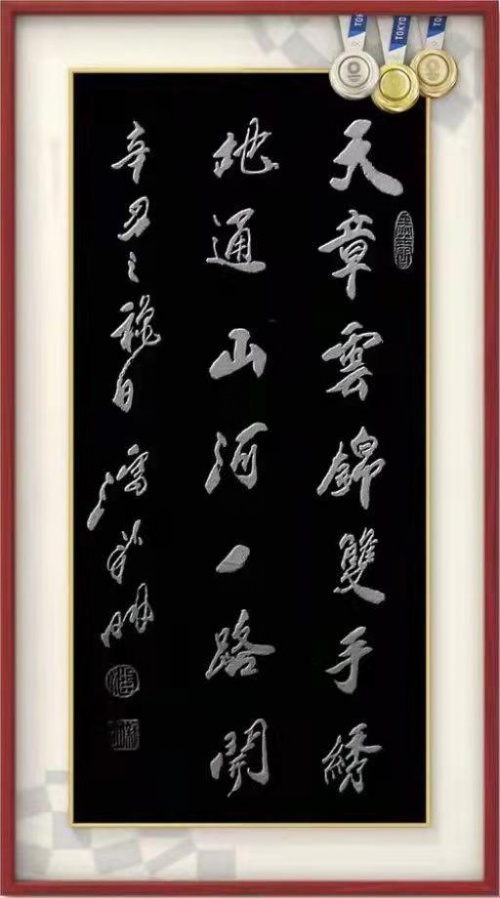 天章雲錦雙手綉
地通山河一路開
辛丑之穐日
TOKYO
TOKYO